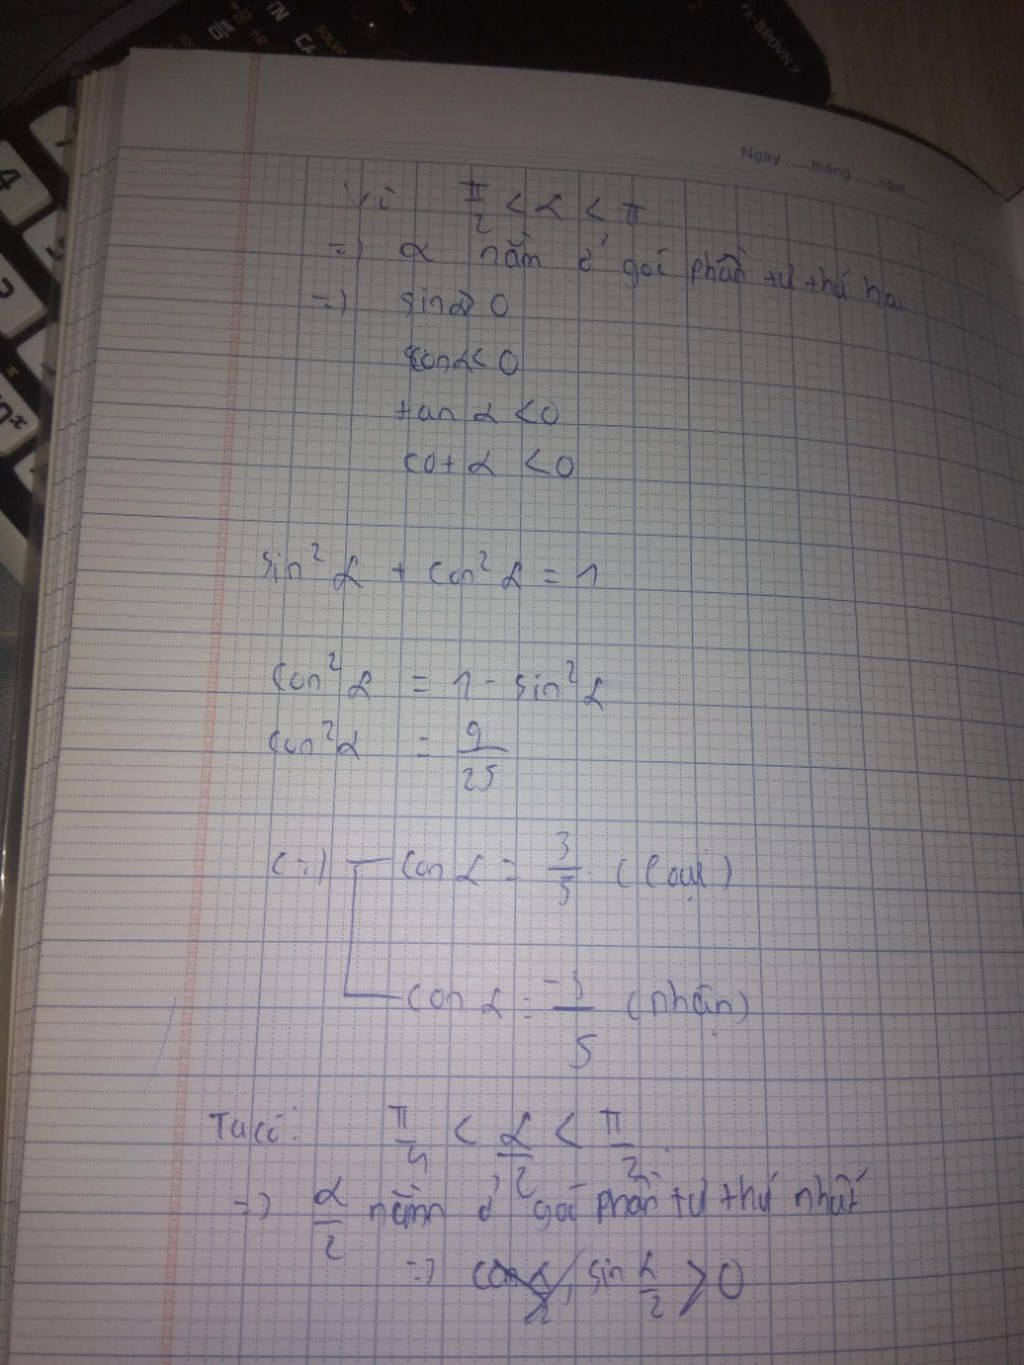 fx-880VN X
Ngày ......tháng ......năm......
Vì π/2 < α < π
=) α nằm ở góc phần tư thứ hai
=) sinα > 0
cosα < 0
tan α < 0
cot α < 0
sin² α + cos² α = 1
cos² α = 1 - sin² α
cos² α = 9/25
(=) cos α = 3/5 (loại)
cos α = -3/5 (nhận)
Ta có: π/4 < α/2 < π/2
=) α/2 nằm ở góc phần tư thứ nhất
=) sin α/2 > 0